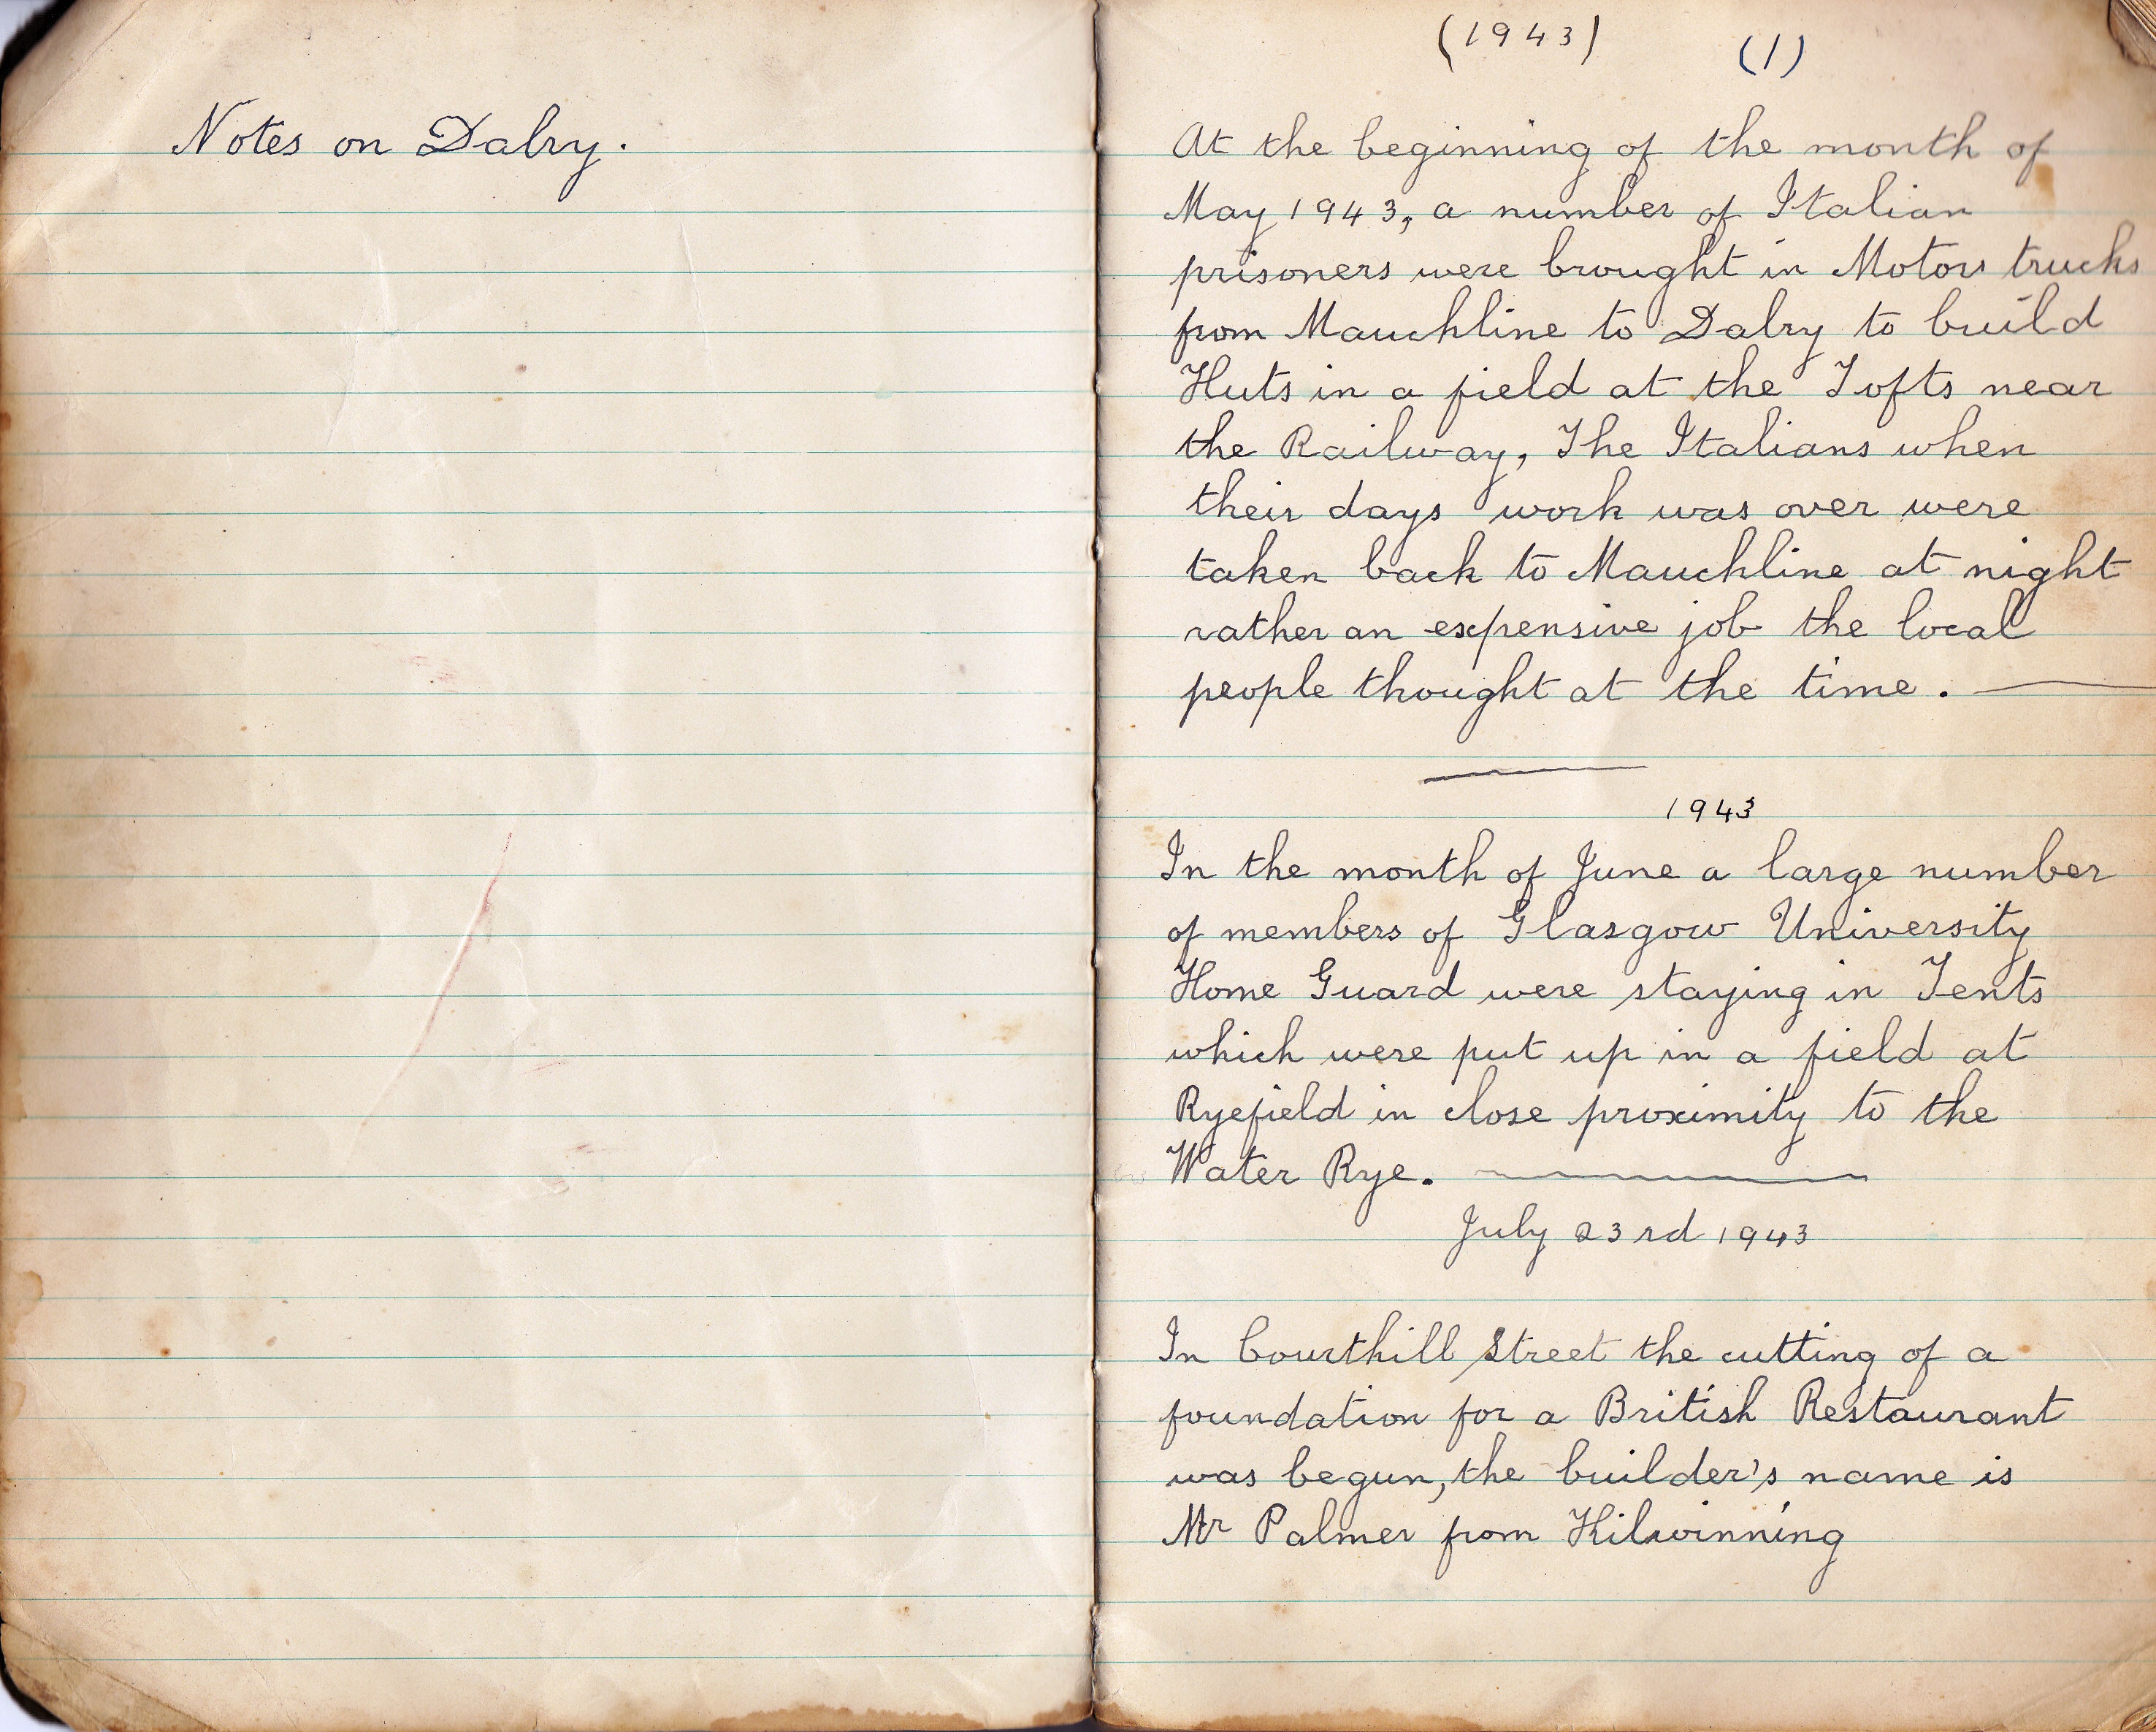 Notes on Dalry.
(1943) (1)
At the beginning of the month of
May 1943, a number of Italian
prisoners were brought in Motor trucks
from Mauchline to Dalry to build
Huts in a field at the Tofts near
the Railway, The Italians when
their days work was over were
taken back to Mauchline at night
rather an expensive job the local
people thought at the time.
1943
In the month of June a large number
of members of Glasgow University
Home Guard were staying in Tents
which were put up in a field at
Ryefield in close proximity to the
Water Rye.
July 23rd 1943
In Courthill Street the cutting of a
foundation for a British Restaurant
was begun, the builder's name is
Mr Palmer from Kilwinning